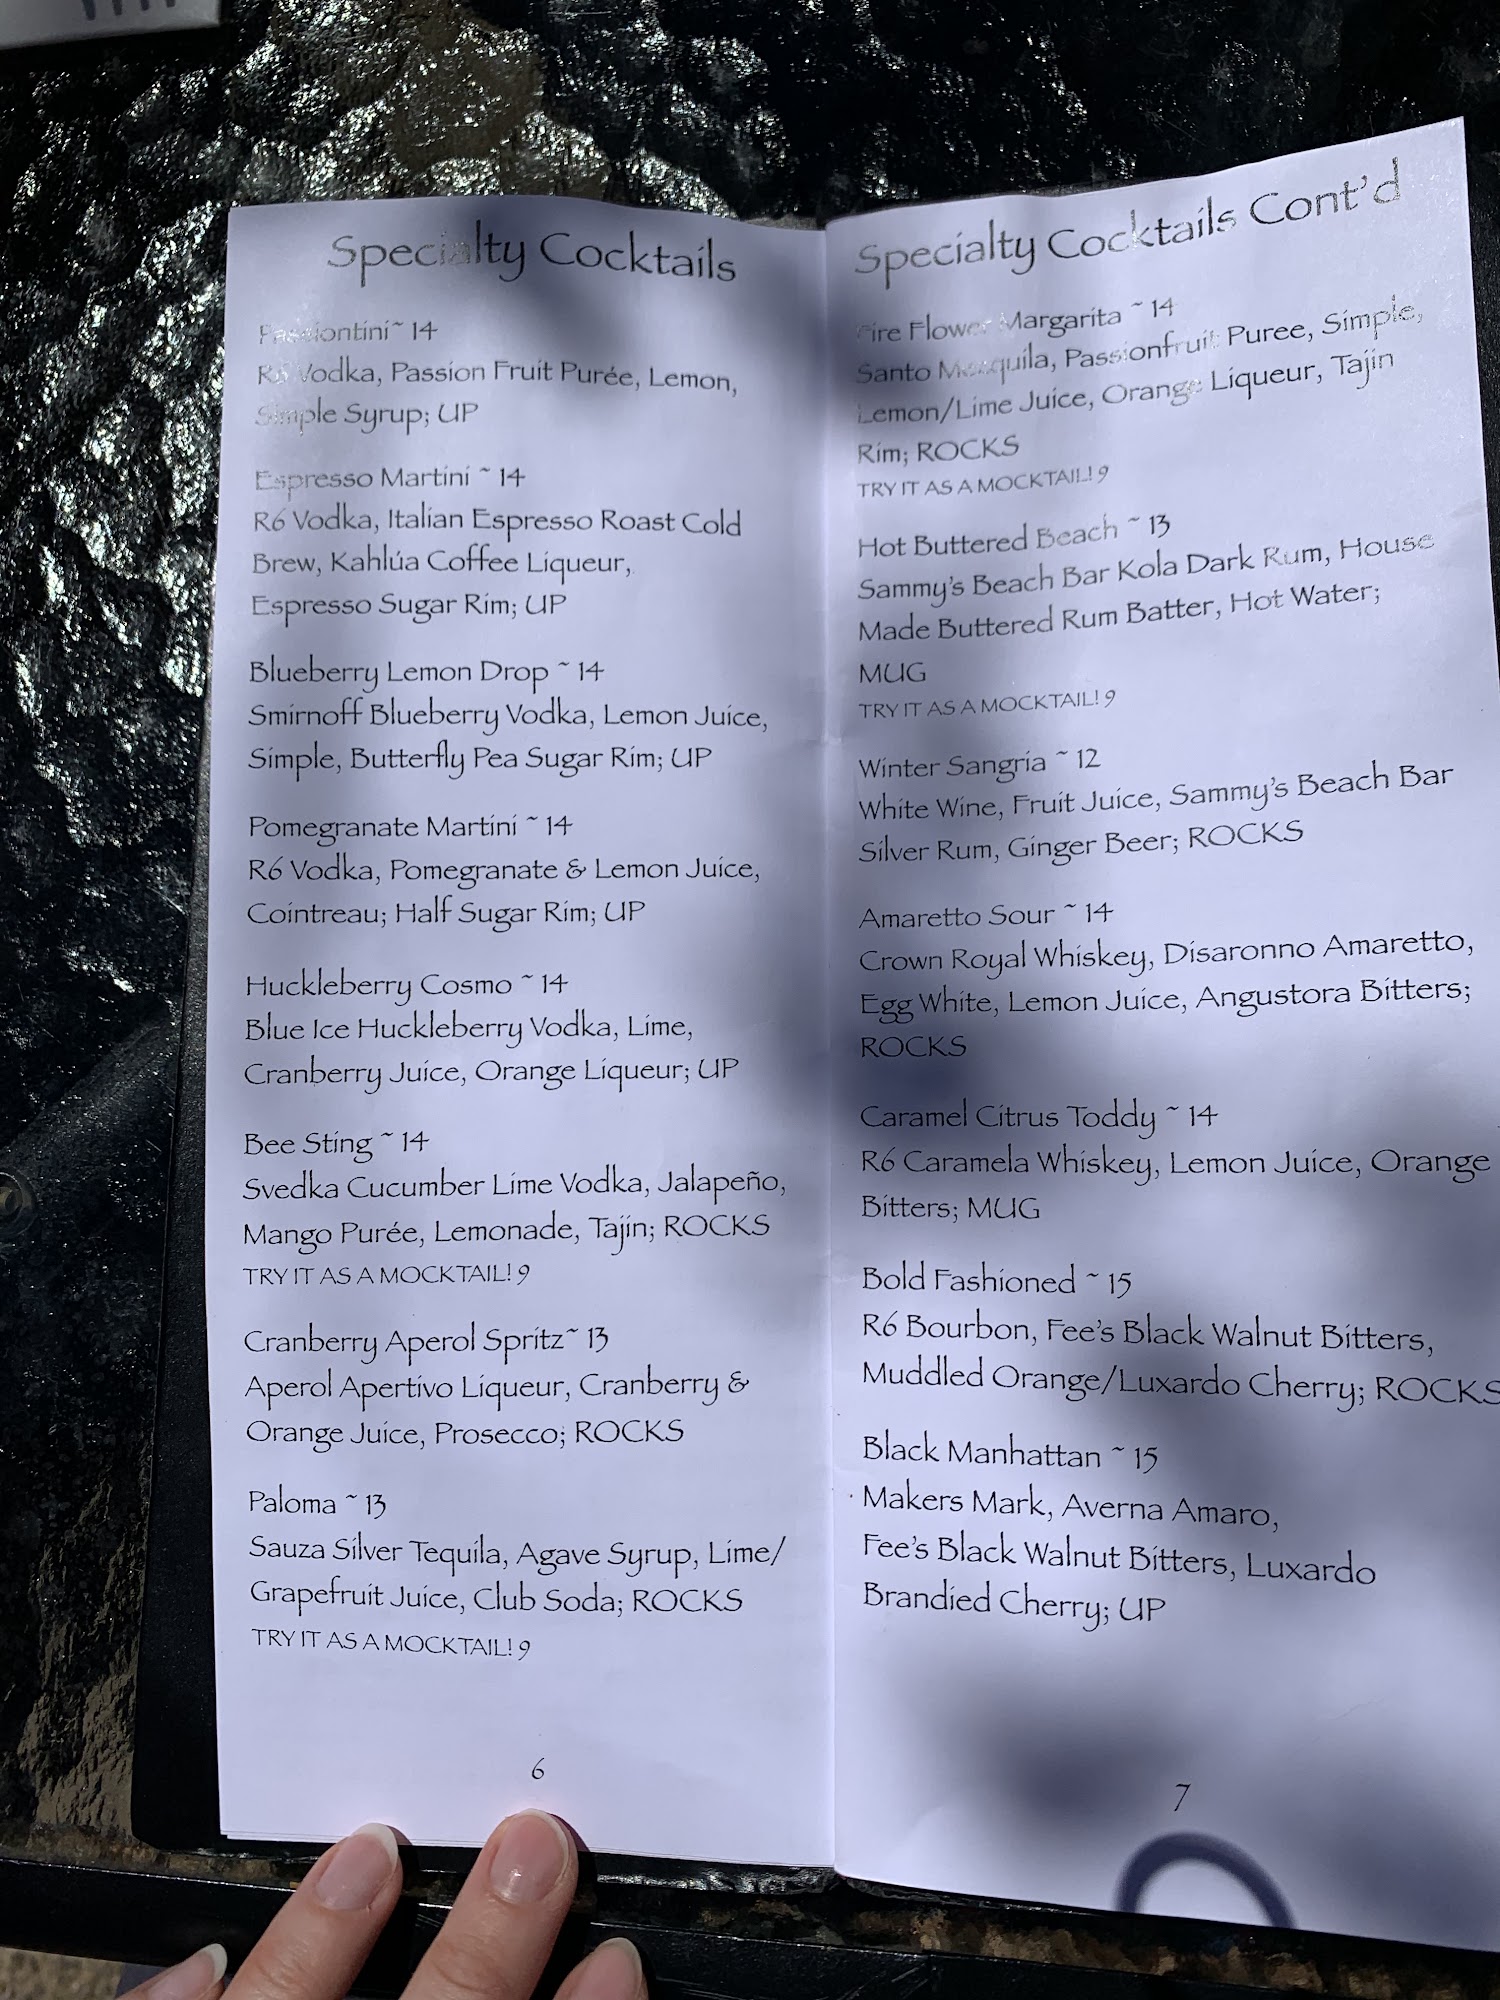 Specialty Cocktails
Passiontini~ 14
R6 Vodka, Passion Fruit Purée, Lemon,
Simple Syrup; UP
Espresso Martini ~ 14
R6 Vodka, Italian Espresso Roast Cold
Brew, Kahlúa Coffee Liqueur,
Espresso Sugar Rim; UP
Blueberry Lemon Drop ~ 14
Smirnoff Blueberry Vodka, Lemon Juice,
Simple, Butterfly Pea Sugar Rim; UP
Pomegranate Martini ~ 14
R6 Vodka, Pomegranate & Lemon Juice,
Cointreau; Half Sugar Rim; UP
Huckleberry Cosmo ~ 14
Blue Ice Huckleberry Vodka, Lime,
Cranberry Juice, Orange Liqueur; UP
Bee Sting ~ 14
Svedka Cucumber Lime Vodka, Jalapeño,
Mango Purée, Lemonade, Tajin; ROCKS
TRY IT AS A MOCKTAIL! 9
Cranberry Aperol Spritz~ 13
Aperol Apertivo Liqueur, Cranberry &
Orange Juice, Prosecco; ROCKS
Paloma ~ 13
Sauza Silver Tequila, Agave Syrup, Lime/
Grapefruit Juice, Club Soda; ROCKS
TRY IT AS A MOCKTAIL! 9
6
Specialty Cocktails Cont'd
Fire Flower Margarita ~ 14
Santo Mezquila, Passionfruit Puree, Simple,
Lemon/Lime Juice, Orange Liqueur, Tajin
Rim; ROCKS
TRY IT AS A MOCKTAIL! 9
Hot Buttered Beach ~ 13
Sammy's Beach Bar Kola Dark Rum, House
Made Buttered Rum Batter, Hot Water;
MUG
TRY IT AS A MOCKTAIL! 9
Winter Sangria ~ 12
White Wine, Fruit Juice, Sammy's Beach Bar
Silver Rum, Ginger Beer; ROCKS
Amaretto Sour ~ 14
Crown Royal Whiskey, Disaronno Amaretto,
Egg White, Lemon Juice, Angustora Bitters;
ROCKS
Caramel Citrus Toddy ~ 14
R6 Caramela Whiskey, Lemon Juice, Orange
Bitters; MUG
Bold Fashioned ~ 15
R6 Bourbon, Fee's Black Walnut Bitters,
Muddled Orange/Luxardo Cherry; ROCKS
Black Manhattan ~ 15
Makers Mark, Averna Amaro,
Fee's Black Walnut Bitters, Luxardo
Brandied Cherry; UP
7